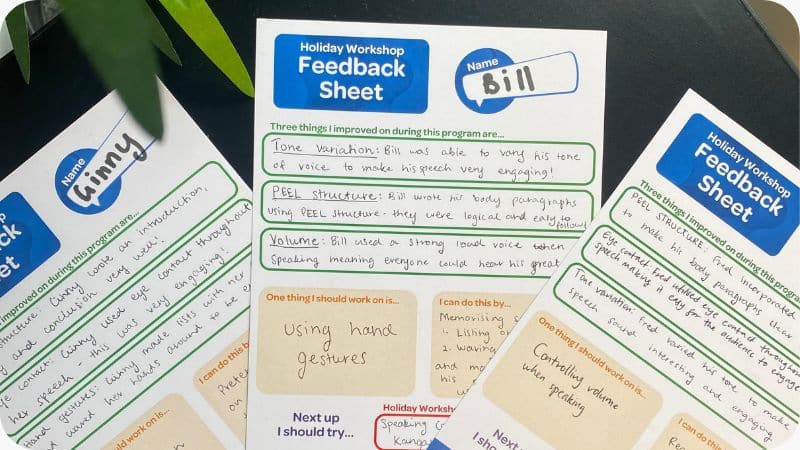 Name
Ginny
Three things I improved on during this program are...
Structure: Ginny wrote an introduction,
and conclusion very well!
contact: Ginny used eye contact throughout
her speech - this was very engaging!
Hand gestures: Ginny made lists with her
waved her hands around to be
One thing I should work on is...
I can do this b
on
Holiday Workshop
Feedback
Sheet
Name
Bill
Three things I improved on during this program are...
Tone Variation: Bill was able to vary his tone
of voice to make his speech very engaging!
PEEL Structure: Bill wrote his body paragraphs
using PEEL structure - they were logical and easy to
follow
Volume: Bill used a strong loud voice when
speaking meaning everyone could hear his great
One thing I should work on is...
using hand
gestures
I can do this by...
Memorising
1. Listing
2. Waving
and
his
Next up
I should try...
Holiday Worksh
Speaking
Kanga
Holiday Workshop
Feedback
Sheet
Three things I improved on during this program
PEEL STRUCTURE: Fred incorporated
to make his body paragraphs clear
Eye contact: Fred utilised eye contact throughout
speech making it easy for the audience to engage
Tone variation: Fred varied his tone to make
speech sound interesting and engaging
One thing I should work on is...
Controlling volume
when speaking
I can do
Next
I shou